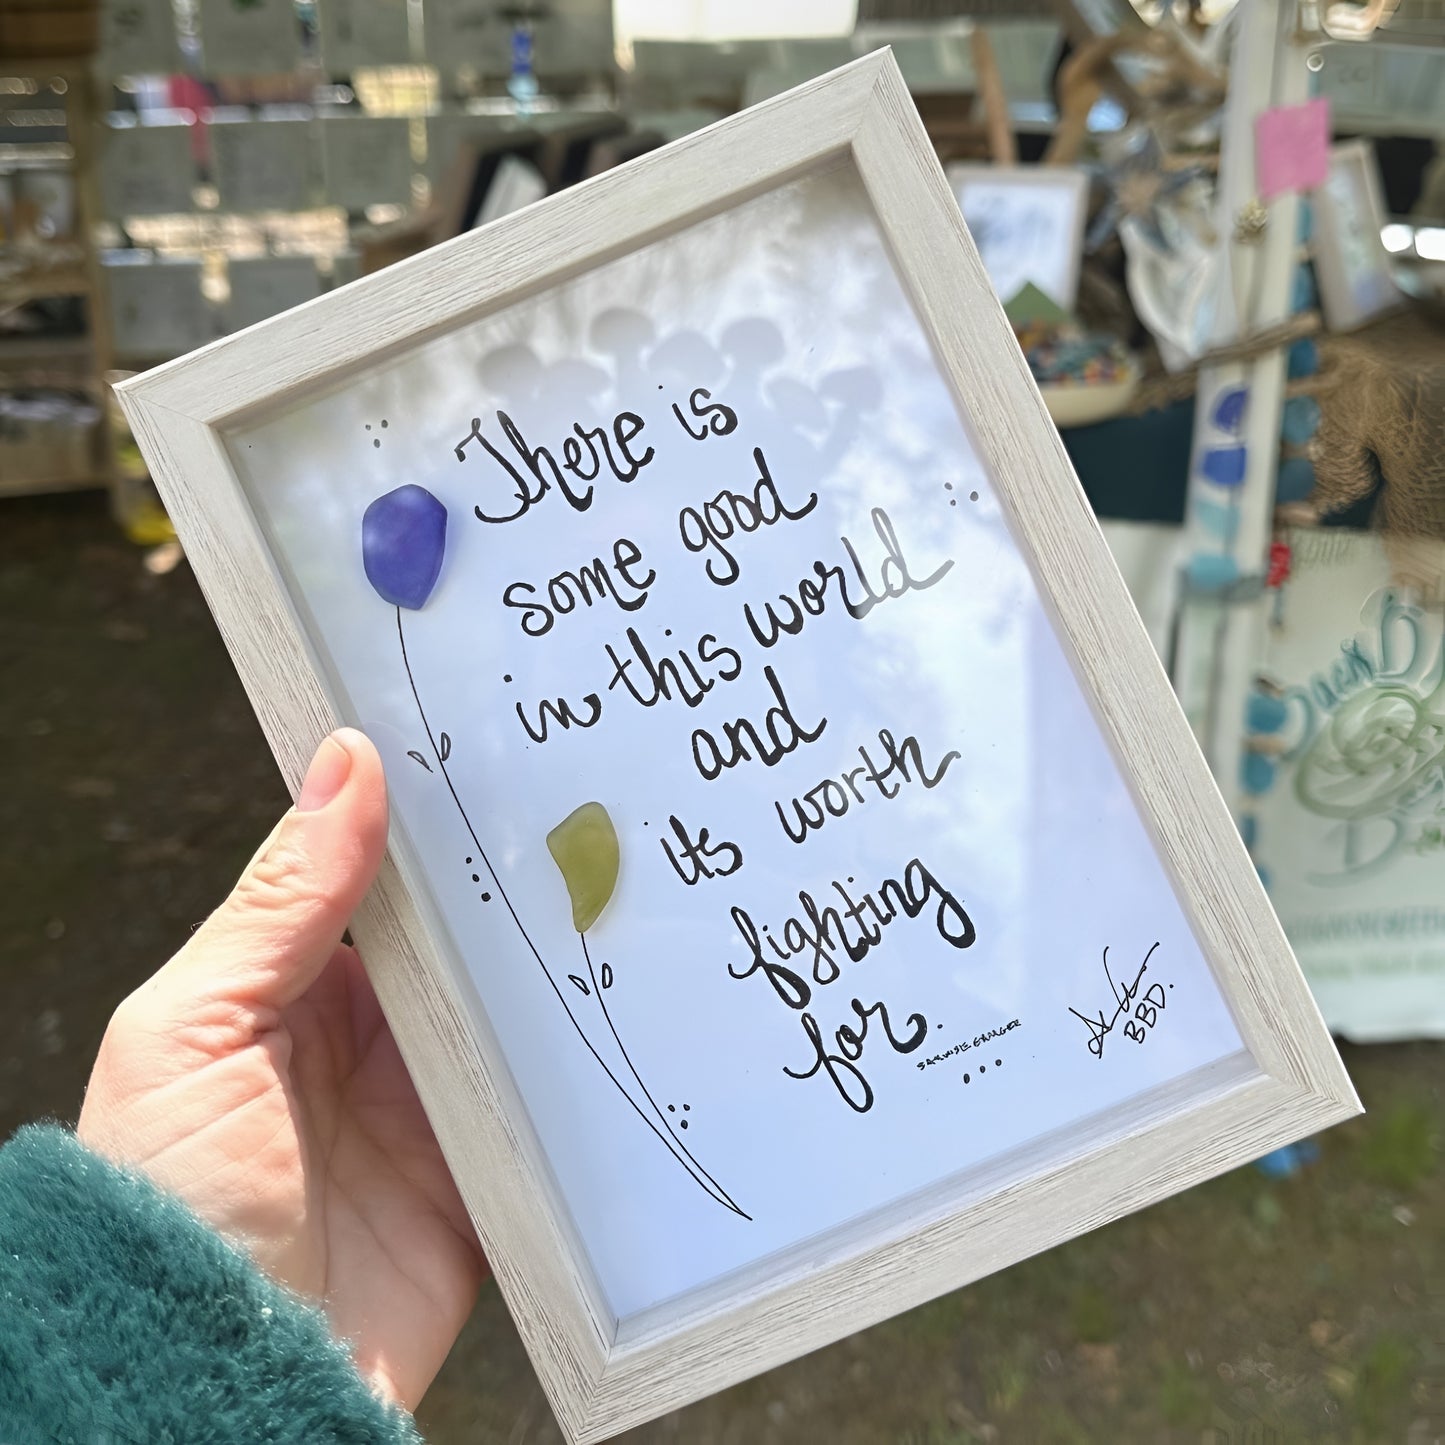 There is
some good
in this world
and
its worth
fighting
for.
SAMWISE GAMGEE
BBD.
Beach